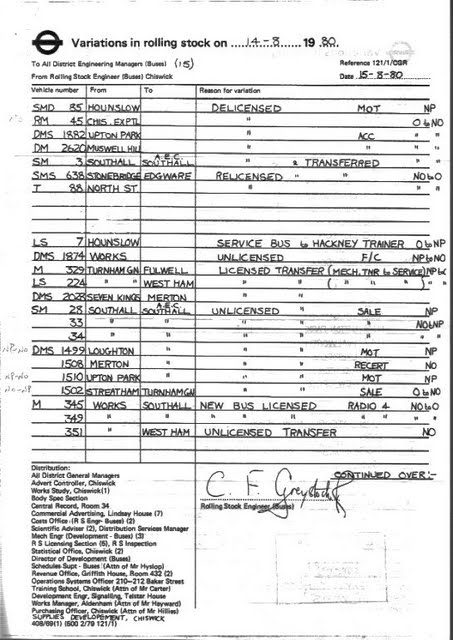 Variations in rolling stock on 14-8 1980.
To All District Engineering Managers (Buses) (15)
Reference 121/1/CGR
From Rolling Stock Engineer (Buses) Chiswick
Date 15-8-80
Vehicle number From To Reason for variation
SMD 85 HOUNSLOW DELICENSED MOT NP
RM 45 CHIS. EXPTL " " O to NO
DMS 1882 UPTON PARK " ACC " "
DM 2620 MUSWELL HILL " " " "
SM 3 SOUTHALL A.E.C. SOUTHALL " & TRANSFERRED " "
SMS 638 STONEBRIDGE EDGWARE RELICENSED " " NO to O
T 88 NORTH ST. " " "
LS 7 HOUNSLOW SERVICE BUS to HACKNEY TRAINER O to NP
DMS 1874 WORKS UNLICENSED F/C NP to NO
M 329 TURNHAM GN FULWELL LICENSED TRANSFER (MECH. TNR to SERVICE) NP to
LS 224 " WEST HAM " " ( " " " ) "
DMS 2028 SEVEN KINGS MERTON " "
SM 28 SOUTHALL A.E.C. SOUTHALL UNLICENSED " SALE NP
33 " " " " " NO to NP
34 " " " " " "
NP-NO DMS 1499 LOUGHTON " " MOT NP
1508 MERTON " " RECERT NO
NP-NO 1510 UPTON PARK " " MOT NP
NO-NP 1502 STREATHAM TURNHAM GN " " SALE O to NO
M 345 WORKS SOUTHALL NEW BUS LICENSED RADIO 4 NO to O
349 " " " " " " " " "
351 " WEST HAM UNLICENSED TRANSFER NO
CONTINUED OVER:-
Distribution:
All District General Managers
Advert Controller, Chiswick
Works Study, Chiswick(1)
Body Spec Section
Central Record, Room 34
Commercial Advertising, Lindsay House (7)
Costs Office (R S Engr- Buses) (2)
Scientific Adviser (2), Distribution Services Manager
Mech Engr (Development - Buses) (3)
R S Licensing Section (6), R S Inspection
Statistical Office, Chiswick (2)
Director of Development (Buses)
Schedules Supt - Buses (Attn of Mr Hyslop)
Revenue Office, Griffith House, Room 432 (2)
Operations Systems Officer 210-212 Baker Street
Training School, Chiswick (Attn of Mr Carter)
Development Engr, Signalling, Telstar House
Works Manager, Aldenham (Attn of Mr Hayward)
Purchasing Officer, Chiswick (Attn of Mr Millis)
SUPPLIES DEVELOPEMENT, CHISWICK
408/69(1) (500 2/79 121/1)
C F Greystock
Rolling Stock Engineer (Buses)